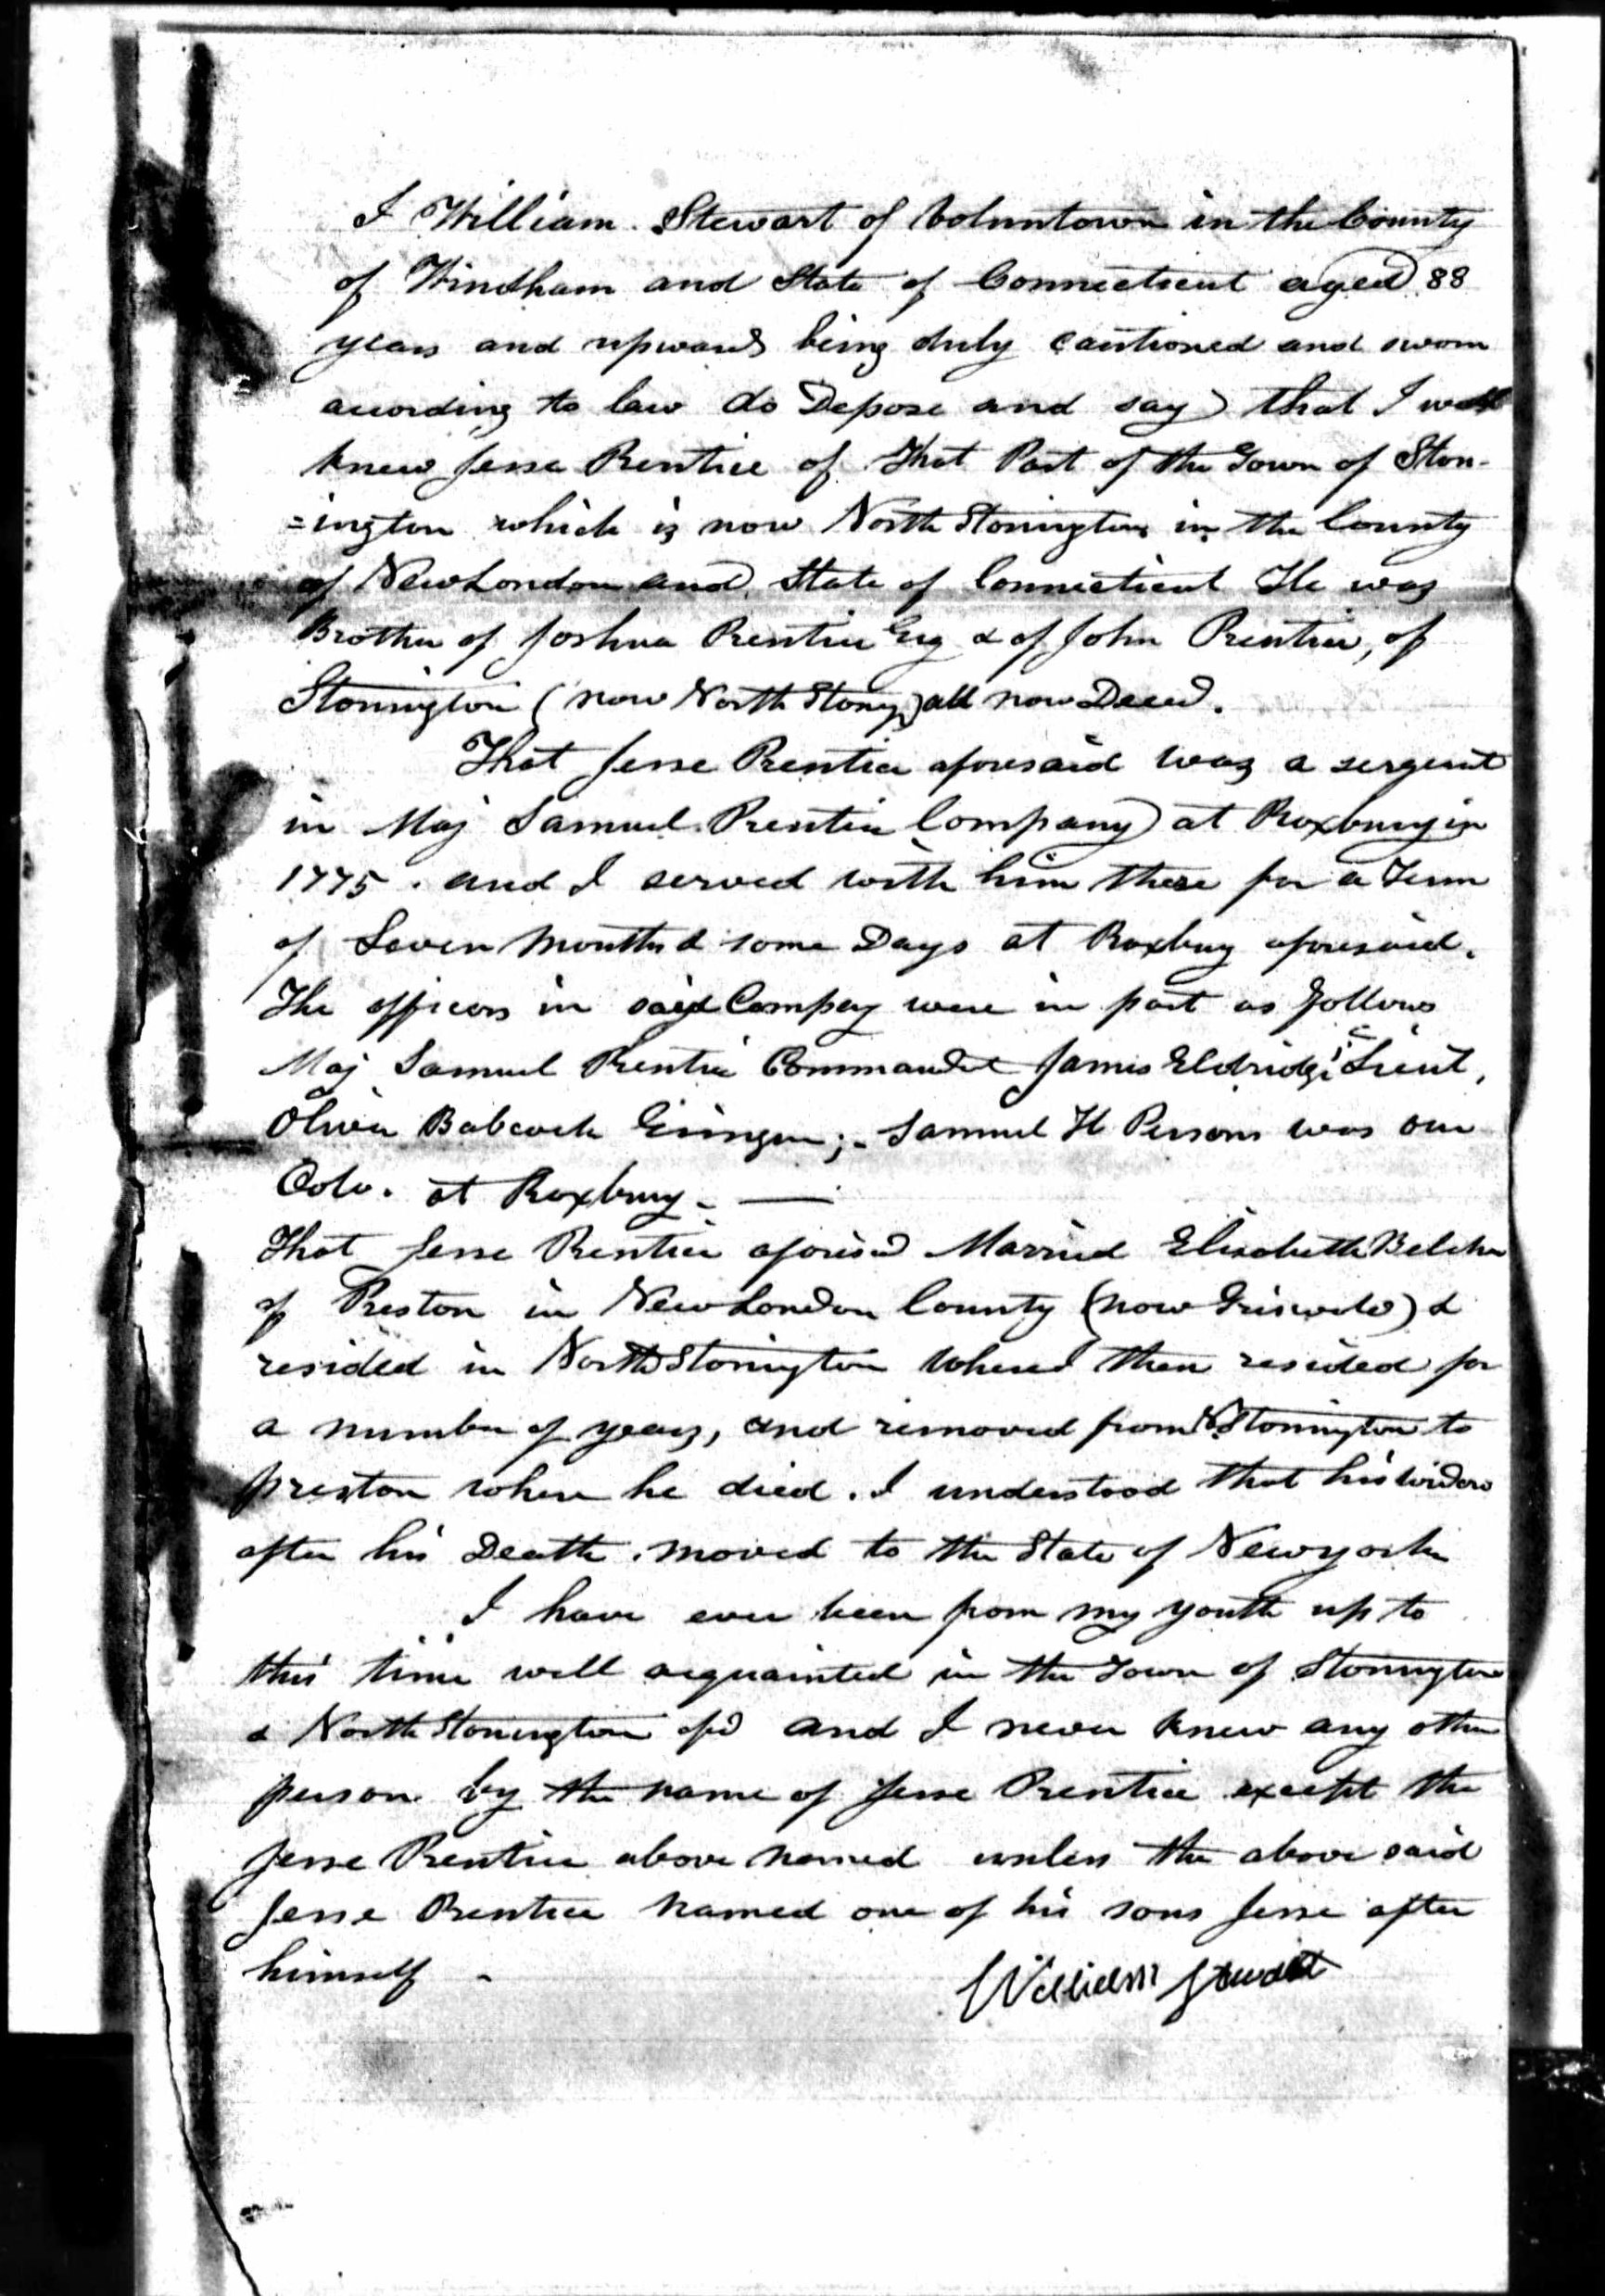 I William Stewart of Volunntown in the County
of Windham and State of Connecticut aged 88
years and upwards being duly cautioned and sworn
acording to law do Depose and say that I well
knew Jesse Prentice of that Part of the Town of Ston-
=ington which is now North Stonington in the County
of New London and State of Connecticut He was
Brother of Joshua Prentice Esq & of John Prentice, of
Stonington (now North Stong) all now Decd.
That Jesse Prentice aforesaid was a sergent
in Maj Samuel Prentice Company at Roxbury in
1775. and I served with him there for a Term
of Seven Months & some Days at Roxbury aforesaid.
The officers in said Compay were in part as follows
Maj Samuel Prentice Commandet James Eldridge 1st Lieut,
Oliver Babcock Ensign;- Samuel H Persons was our
Colo. at Roxbury-
That Jesse Prentice aforesd Married Elisabeth Belcher
of Preston in New London County (now Griswold) &
resided in North Stonington where I then resided for
a number of years, and removed from N Stonington to
preston where he died. I understood that his widow
after his Death moved to the State of Newyork
I have ever been from my youth up to
this time well acquainted in the Town of Stonington
& North Stonington afsd and I never knew any other
person by the name of Jesse Prentice except the
Jesse Prentice above named unless the above said
Jesse Prentice named one of his sons Jesse after
himself -
William Stewart